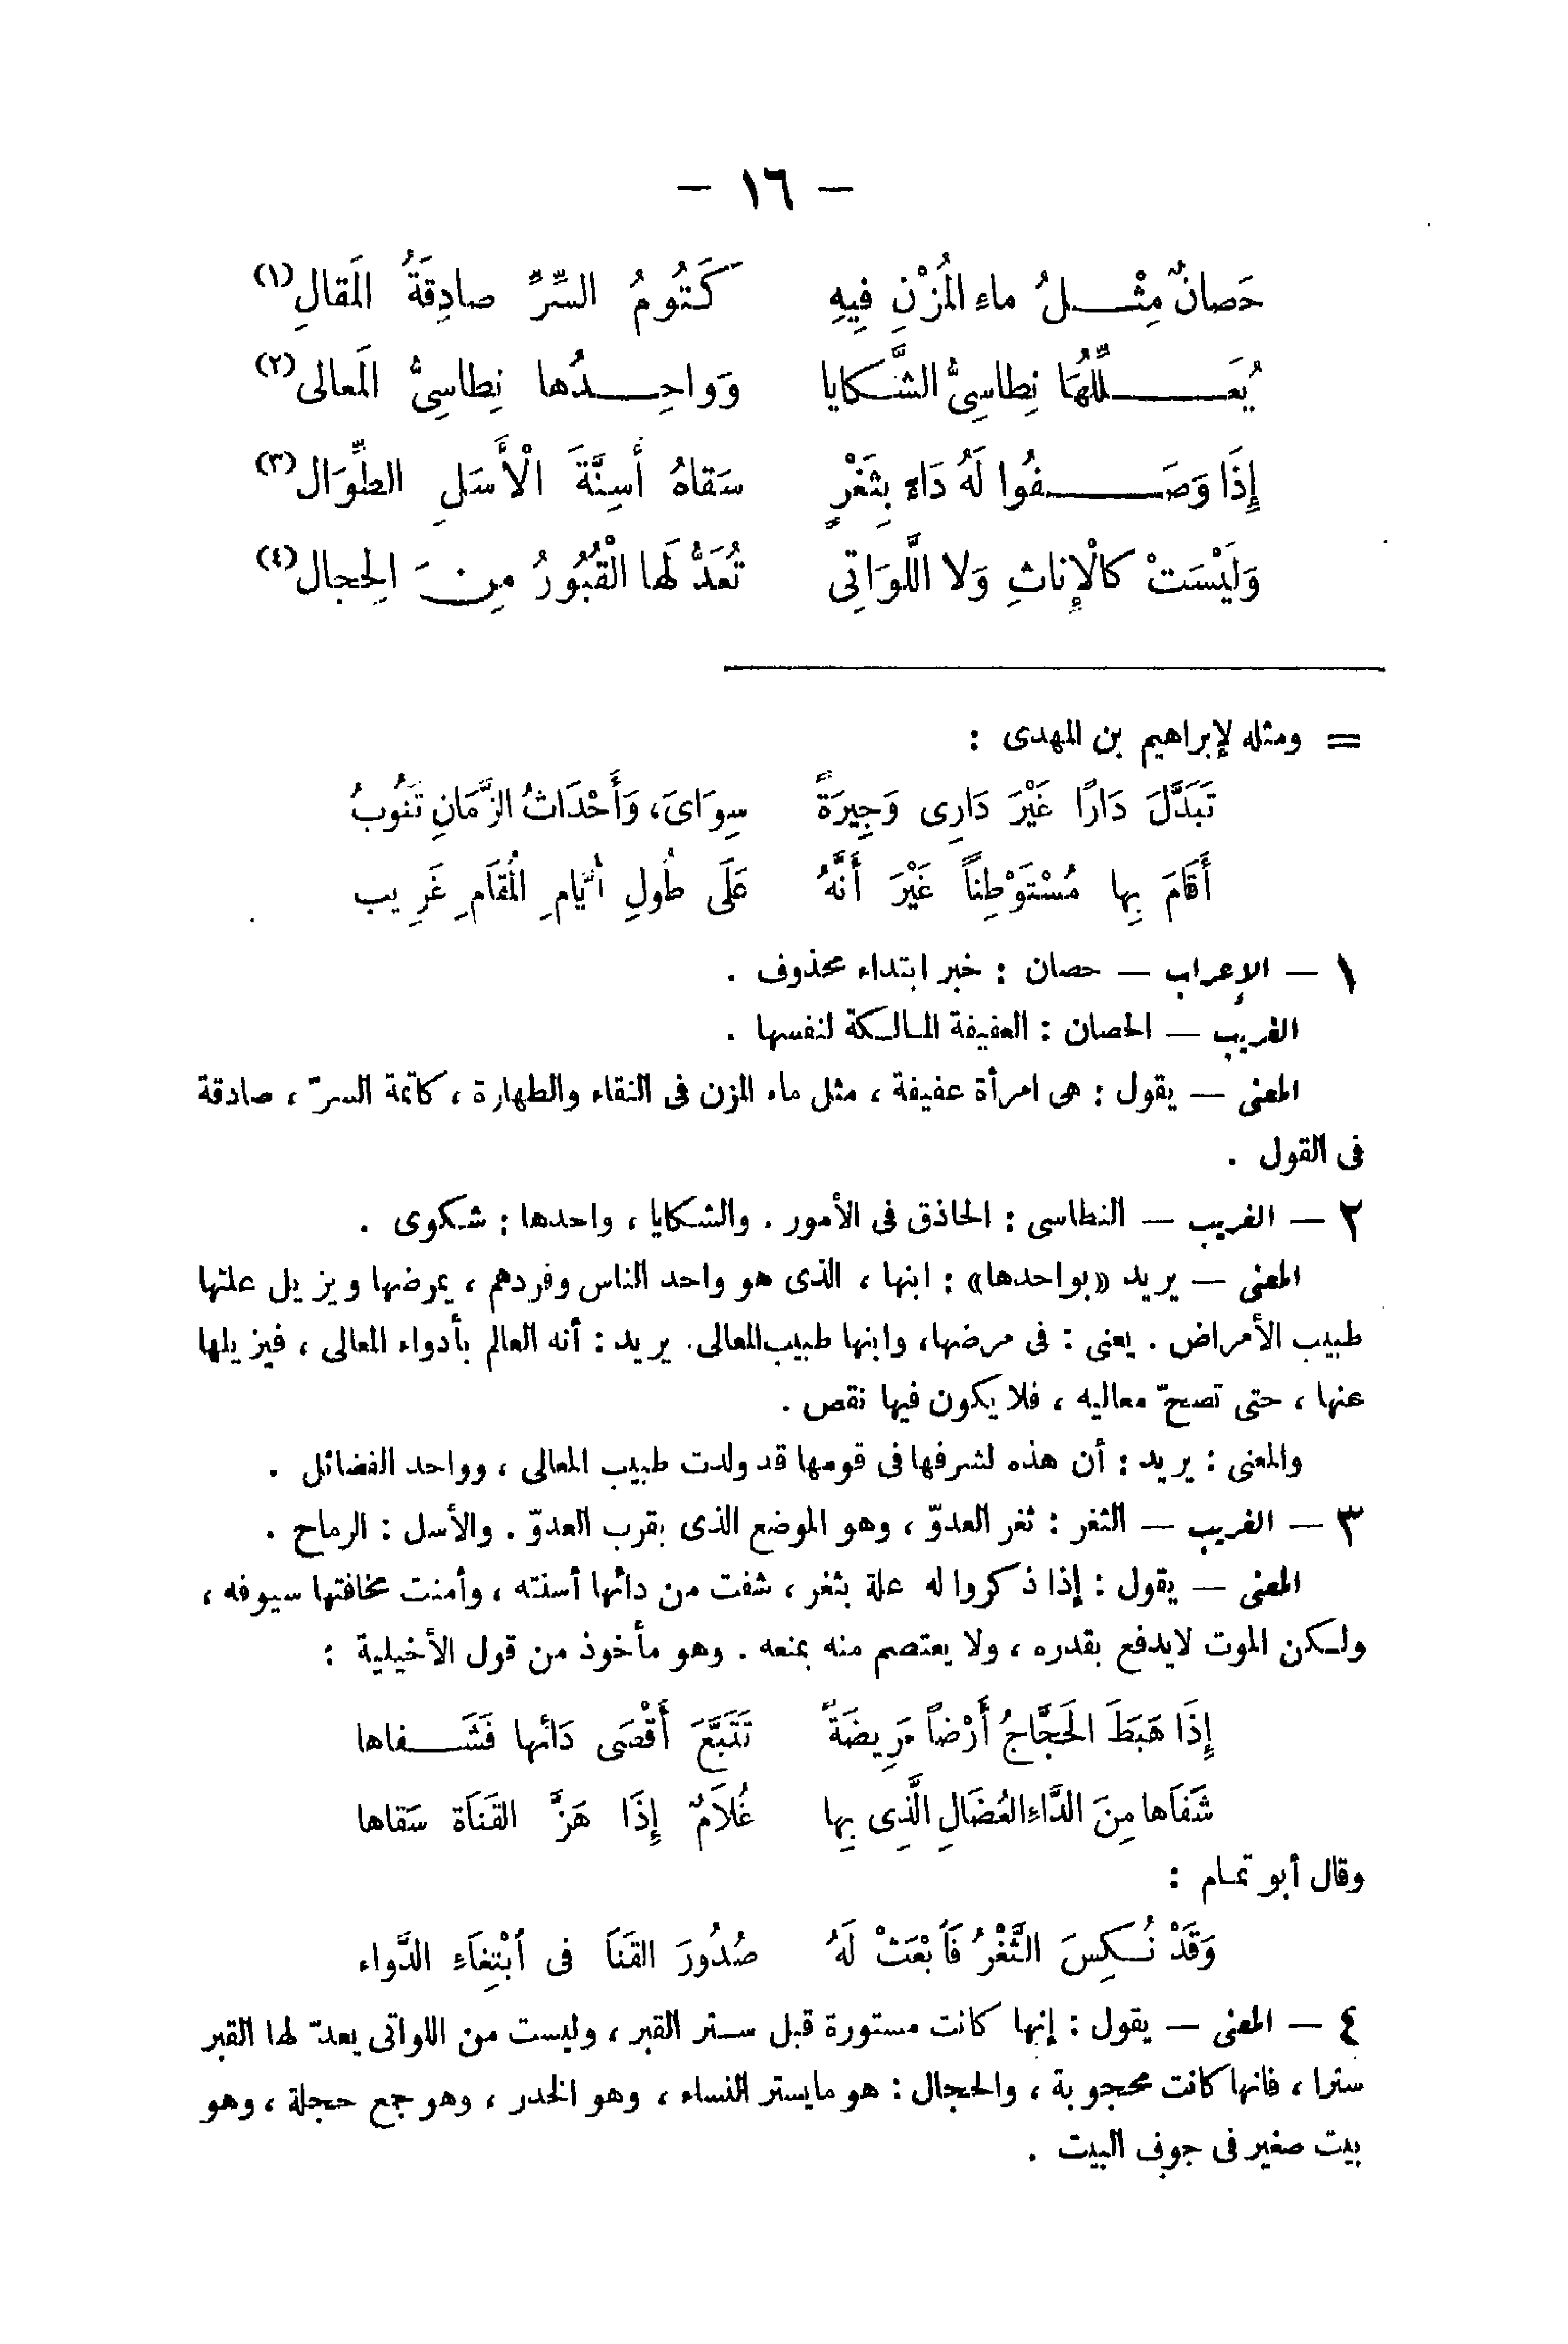 — ١٦ —
حَصانٌ مِثْـــلُ ماءِ المُزْنِ فِيهِ كَتُومُ السِّرِّ صادِقَةُ المَقالِ (١)
يُعَـــلِّلُهَا نِطاسِىُّ الشَّكايا وَواحِـــدُها نِطاسِىُّ المَعالى (٢)
إِذَا وَصَـــفُوا لَهُ دَاءً بِثَغْرٍ سَقاهُ أسِنَّةَ الْأَسَلِ الطِّوَالِ (٣)
وَلَيْسَتْ كالْإِناثِ وَلا اللَّوَاتِى تُعَدُّ لَها الْقُبُورُ مِنَ الحِجالِ (٤)
= ومثله لإبراهيم بن المهدى :
تَبَدَّلَ دَارًا غَيْرَ دَارِى وَجِيرَةً سِوَاىَ، وَأَحْدَاثُ الزَّمَانِ تَنُوبُ
أَقَامَ بِها مُسْتَوْطِناً غَيْرَ أَنَّهُ عَلَى طُولِ أيَّامِ المُقَامِ غَرِيب
١ — الإعراب — حصان : خبر ابتداء محذوف .
الغريب — الحصان : العفيفة المالكة لنفسها .
المعنى — يقول : هى امرأة عفيفة ، مثل ماء المزن فى النقاء والطهارة ، كاتمة السرّ ، صادقة
فى القول .
٢ — الغريب — النطاسى : الحاذق فى الأمور . والشكايا ، واحدها : شكوى .
المعنى — يريد «بواحدها» : ابنها ، الذى هو واحد الناس وفردهم ، يمرضها ويزيل علتها
طبيب الأمراض . يعنى : فى مرضها، وابنها طبيب المعالى. يريد : أنه العالم بأدواء المعالى ، فيزيلها
عنها ، حتى تصحّ معاليه ، فلا يكون فيها نقص .
والمعنى : يريد : أن هذه لشرفها فى قومها قد ولدت طبيب المعالى ، وواحد الفضائل .
٣ — الغريب — الثغر : ثغر العدوّ ، وهو الموضع الذى بقرب العدوّ . والأسل : الرماح .
المعنى — يقول : إذا ذكروا له علة بثغر ، شفت من دائها أسنته ، وأمنت مخافتها سيوفه ،
ولكن الموت لايدفع بقدره ، ولا يعتصم منه بمنعه . وهو مأخوذ من قول الأخيلية :
إِذَا هَبَطَ الحَجَّاجُ أَرْضاً مَرِيضَةً تَتَبَّعَ أَقْصَى دَائها فَشَـــفاها
شَفَاَها مِنَ الدَّاءِ العُضَالِ الَّذِى بِها غُلاَمٌ إِذَا هَزَّ القَنَاَة سَقاها
وقال أبو تمام :
وَقَدْ نُكِسَ الثَّغْرُ فَاَبْعَثْ لَهُ صُدُورَ القَنَا فى اُبْتِغَاءِ الدَّواء
٤ — المعنى — يقول : إنها كانت مستورة قبل ستر القبر ، وليست من اللواتى يعدّ لها القبر
سترا ، فانها كانت محجوبة ، والحجال : هو مايستر النساء ، وهو الخدر ، وهو جمع حجلة ، وهو
بيت صغير فى جوف البيت .